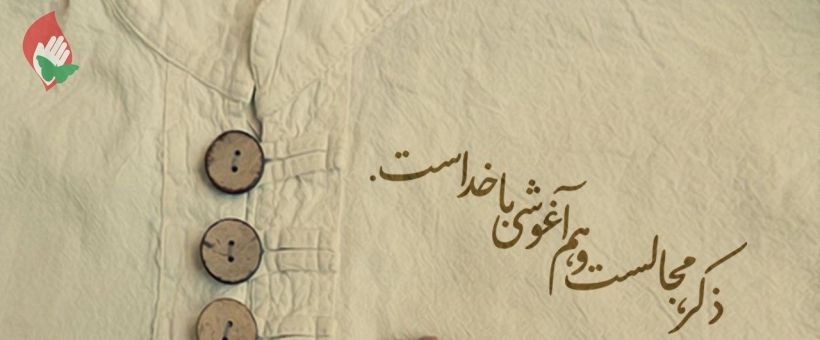 ذکر، مجالست و هم آغوشی با خداست.